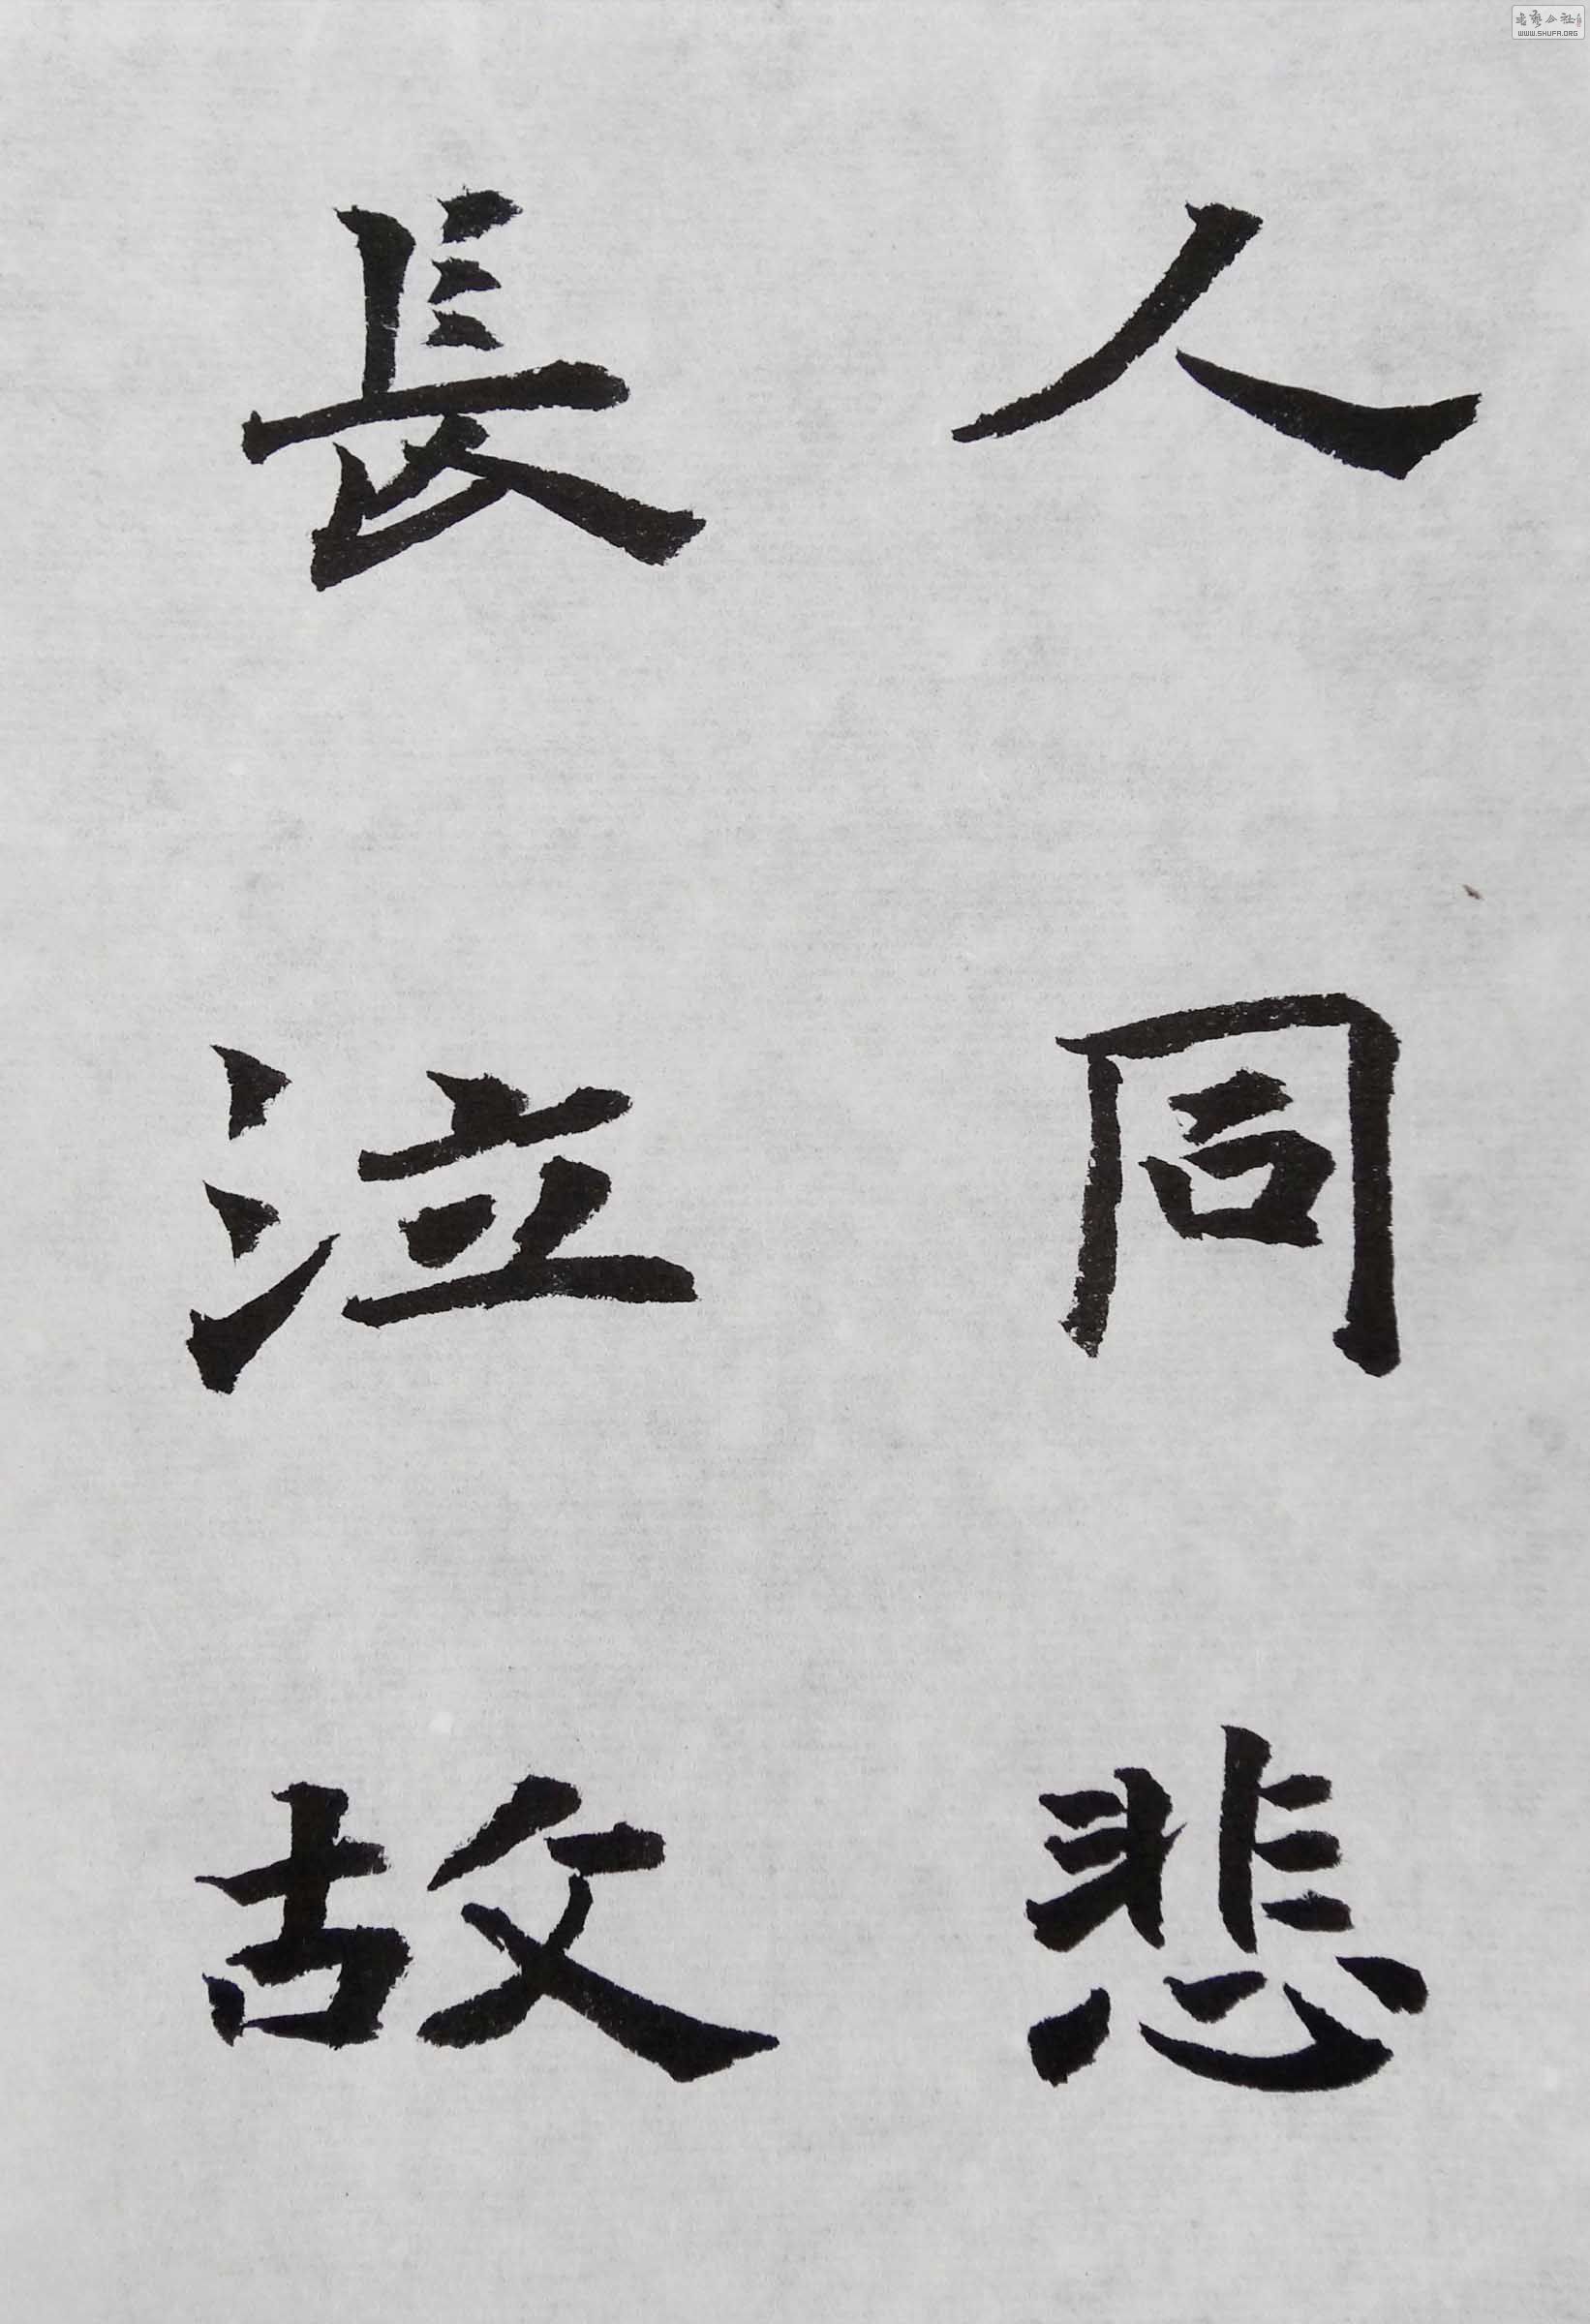 人同悲
長泣故
WWW.SHUFA.ORG